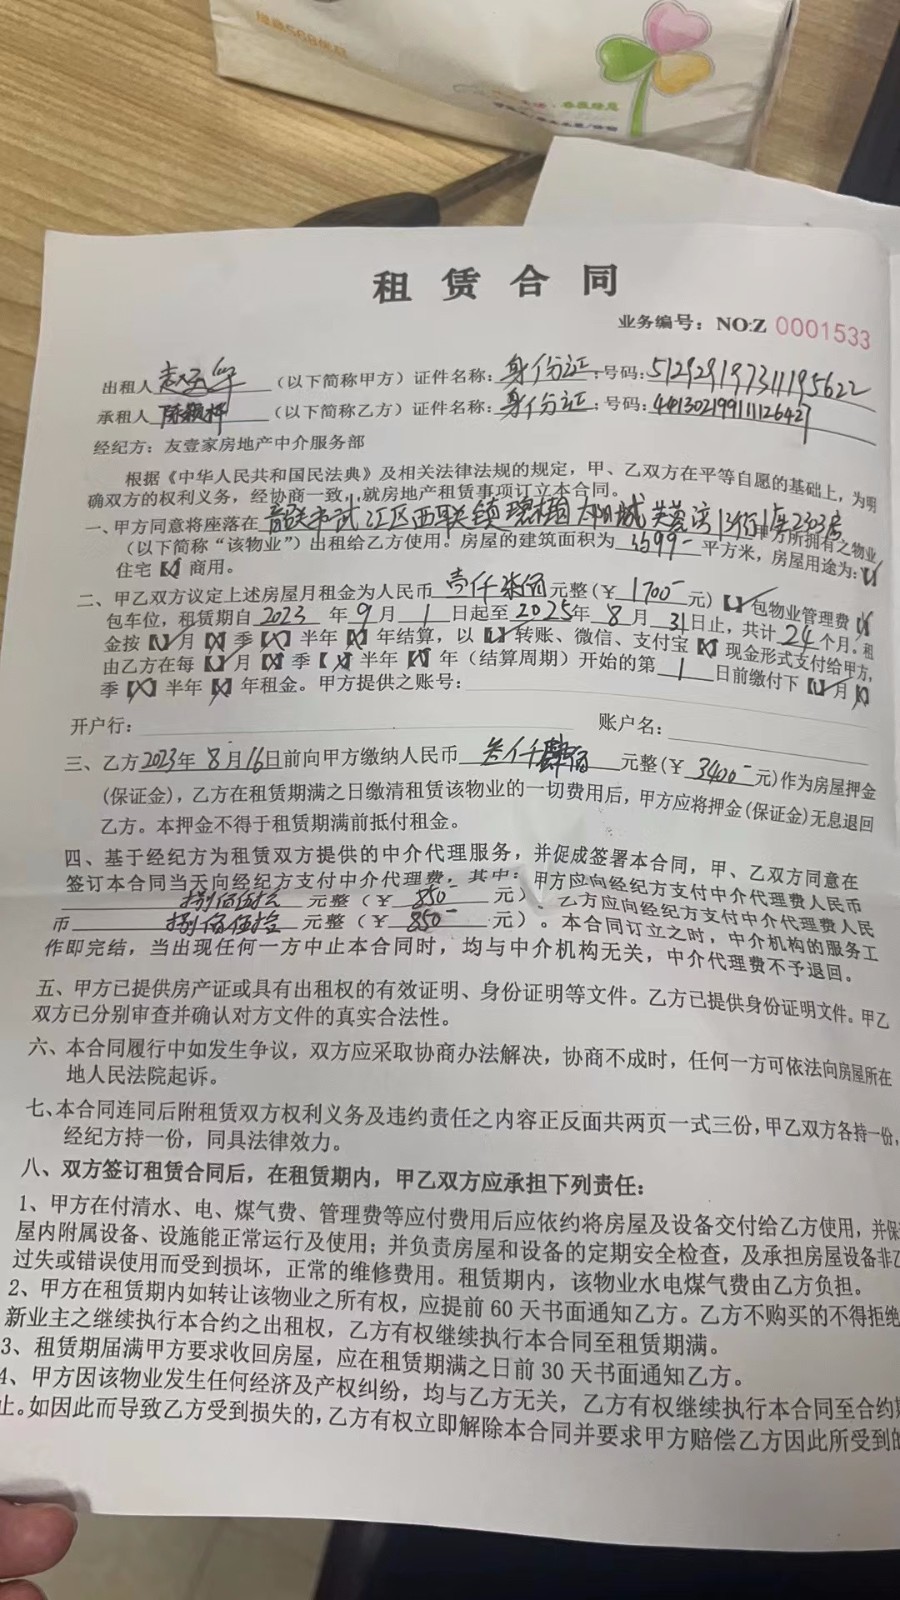 租赁合同
业务编号：NO:Z 0001533
出租人（以下简称甲方）证件名称：身份证；号码：512929197311195622
承租人 陈颖桦（以下简称乙方）证件名称：身份证；号码：441302199111126427
经纪方：友壹家房地产中介服务部
根据《中华人民共和国民法典》及相关法律法规的规定，甲、乙双方在平等自愿的基础上，为明
确双方的权利义务，经协商一致，就房地产租赁事项订立本合同。
一、甲方同意将座落在 韶关市武江区西联镇碧桂园太阳城芙蓉湾13街1座2303房 甲方所拥有之物业
（以下简称“该物业”）出租给乙方使用。房屋的建筑面积为 约99 平方米，房屋用途为：【√】
住宅【×】商用。
二、甲乙双方议定上述房屋月租金为人民币 壹仟柒佰 元整（￥1700- 元）【√】包物业管理费【×】
包车位，租赁期自 2023 年 9 月 1 日起至 2025 年 8 月 31 日止，共计 24 个月。租
金按【√】月【×】季【×】半年【×】年结算，以【√】转账、微信、支付宝【×】现金形式支付给甲方，
由乙方在每【√】月【×】季【×】半年【×】年（结算周期）开始的第 1 日前缴付下【√】月【×】
季【×】半年【×】年租金。甲方提供之账号：
开户行： 账户名：
三、乙方 2023年 8月16日前向甲方缴纳人民币 叁仟肆佰 元整（￥3400- 元）作为房屋押金
（保证金），乙方在租赁期满之日缴清租赁该物业的一切费用后，甲方应将押金（保证金）无息退回
乙方。本押金不得于租赁期满前抵付租金。
四、基于经纪方为租赁双方提供的中介代理服务，并促成签署本合同，甲、乙双方同意在
签订本合同当天向经纪方支付中介代理费，其中：甲方应向经纪方支付中介代理费人民币
捌佰伍拾 元整（￥850- 元）、乙方应向经纪方支付中介代理费人民
币 捌佰伍拾 元整（￥850- 元）。本合同订立之时，中介机构的服务工
作即完结，当出现任何一方中止本合同时，均与中介机构无关，中介代理费不予退回。
五、甲方已提供房产证或具有出租权的有效证明、身份证明等文件。乙方已提供身份证明文件。甲乙
双方已分别审查并确认对方文件的真实合法性。
六、本合同履行中如发生争议，双方应采取协商办法解决，协商不成时，任何一方可依法向房屋所在
地人民法院起诉。
七、本合同连同后附租赁双方权利义务及违约责任之内容正反面共两页一式三份，甲乙双方各持一份，
经纪方持一份，同具法律效力。
八、双方签订租赁合同后，在租赁期内，甲乙双方应承担下列责任：
1、甲方在付清水、电、煤气费、管理费等应付费用后应依约将房屋及设备交付给乙方使用，并保
屋内附属设备、设施能正常运行及使用；并负责房屋和设备的定期安全检查，及承担房屋设备非乙
过失或错误使用而受到损坏，正常的维修费用。租赁期内，该物业水电煤气费由乙方负担。
2、甲方在租赁期内如转让该物业之所有权，应提前60天书面通知乙方。乙方不购买的不得拒绝
新业主之继续执行本合约之出租权，乙方有权继续执行本合同至租赁期满。
3、租赁期届满甲方要求收回房屋，应在租赁期满之日前30天书面通知乙方。
4、甲方因该物业发生任何经济及产权纠纷，均与乙方无关，乙方有权继续执行本合同至合约期
止。如因此而导致乙方受到损失的，乙方有权立即解除本合同并要求甲方赔偿乙方因此所受到的